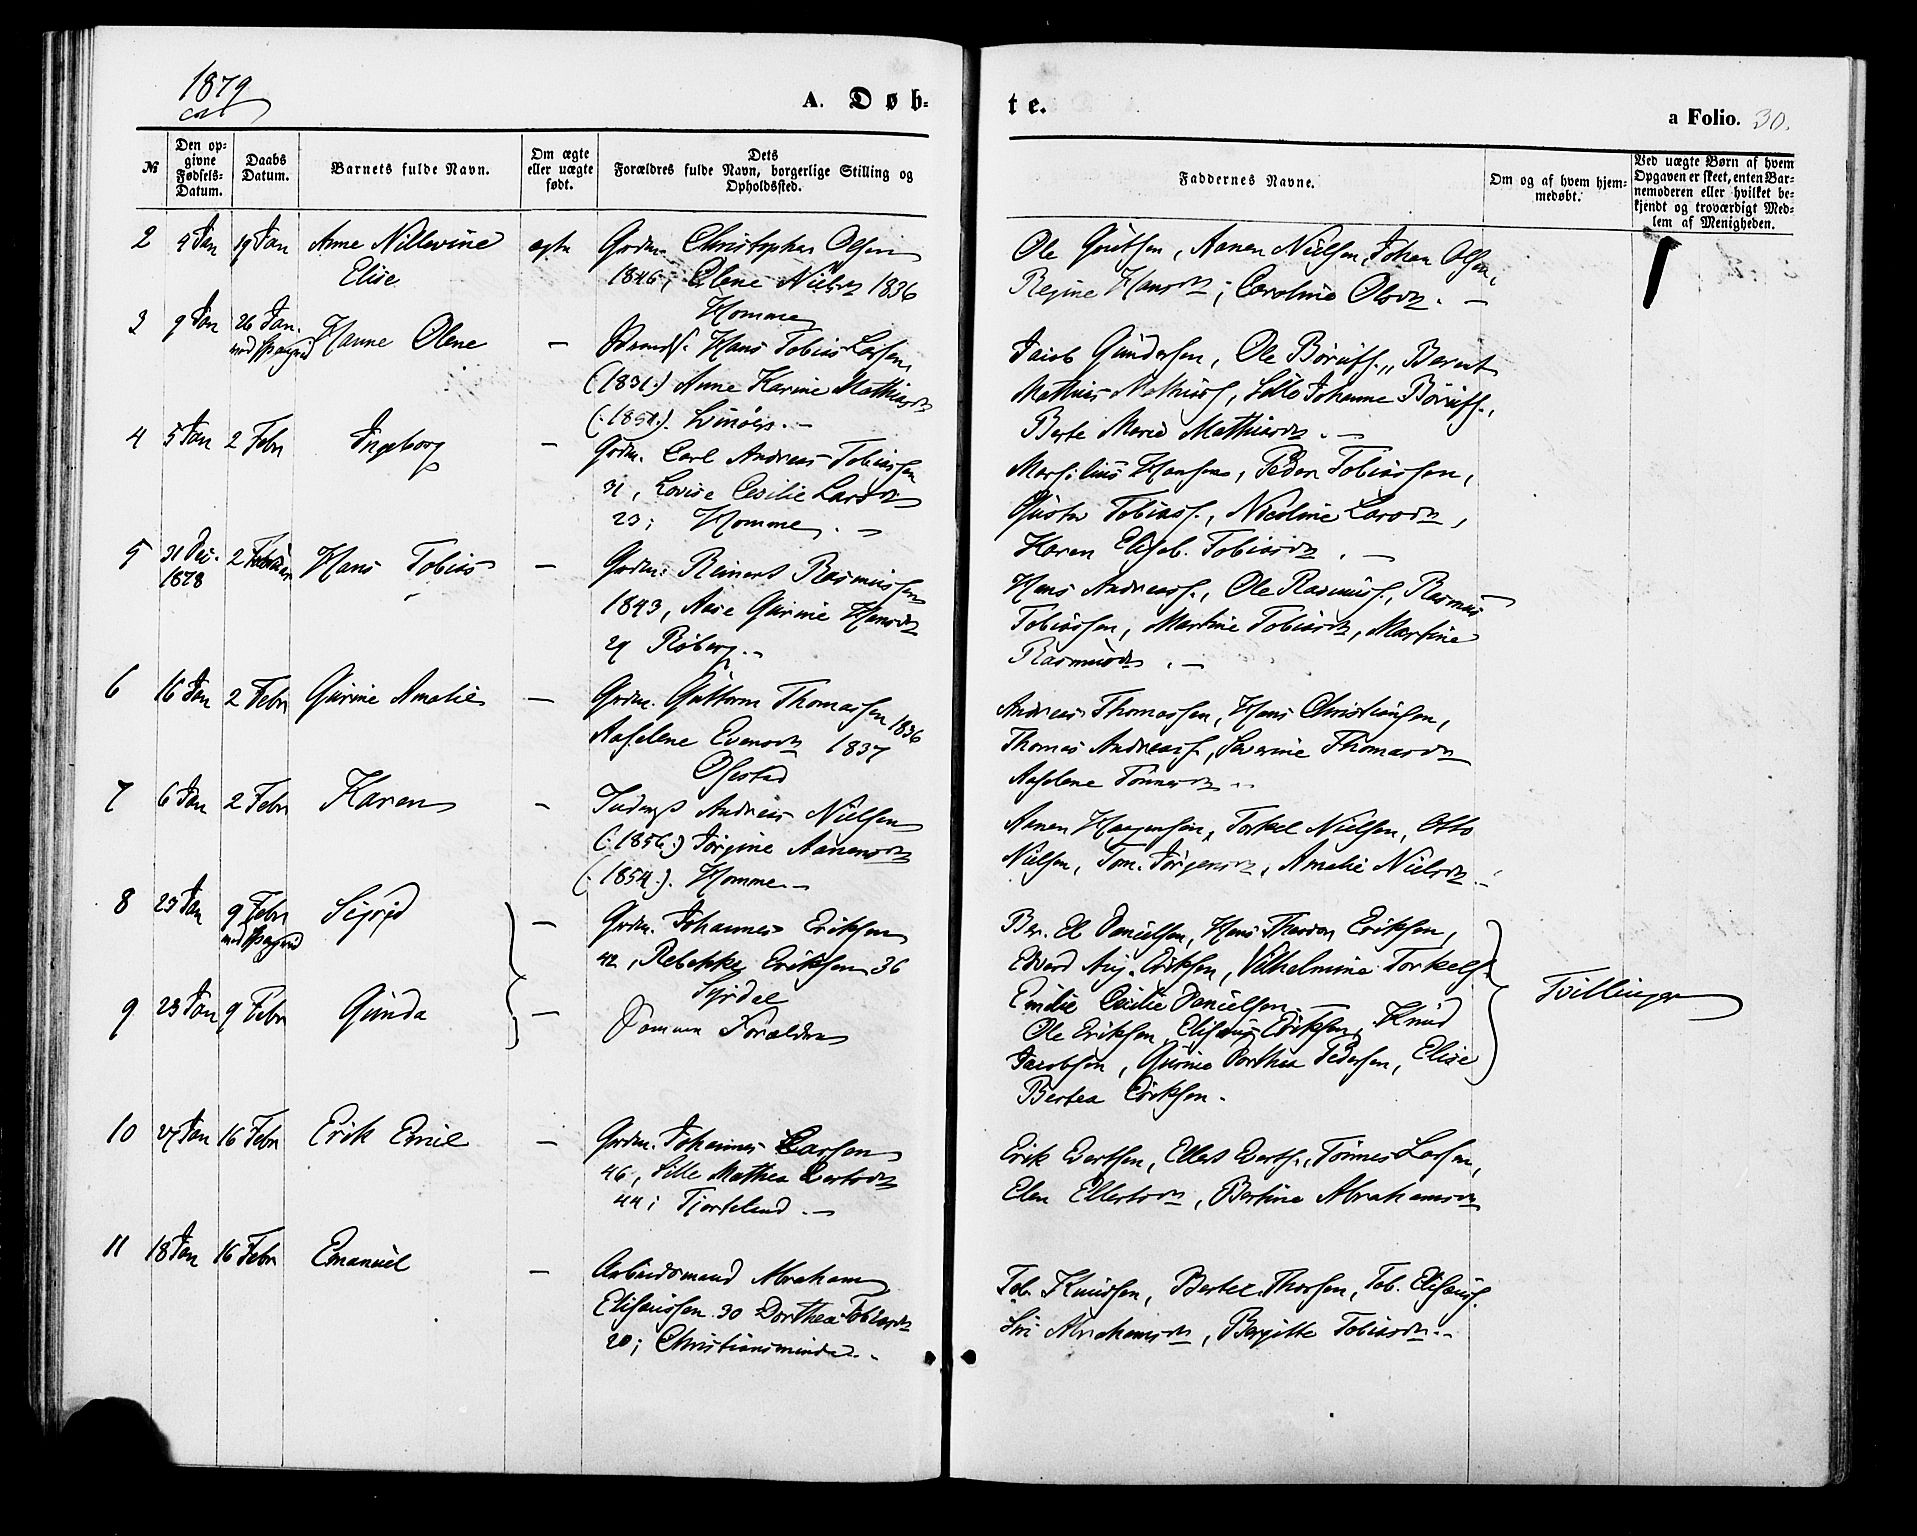 1879
A. Døb-
te.
a Folio. 30.
№
Den op-
givne
Fødsels-
Datum.
Daabs
Datum.
Barnets fulde Navn.
Om ægte
eller uægte
født.
Dets
Forældres fulde Navn, borgerlige Stilling og
Opholdssted.
Faddernes Navne.
Om og af hvem hjem-
medøbt.
Ved uægte Børn af hvem
Opgaven er skeet, enten Bar-
nemoderen eller hvilket be-
kjendt og troværdigt Med-
lem af Menigheden.
2 4 Jan 19 Jan Anne Nillevine ægte Grdm. Christopher Olsen
Elise 1846; Olene Nielsd 1836
Homme
Ole Aanen Nielsen, Johan Olsen,
Regine Hansd; Caroline Olsd. —
3 9 Jan 26 Jan. Hanne Olene — Hans Tobias Larsen
(1831.) Anne Karine Mathiasd
(:1851.)
Jacob Gundersen, Ole Børufs., Berent
Mathias Johanne Børufs.,
Berte Marie Mathiasd. —
4 5 Jan 2 Febr Ingeborg — Grdm. Carl Andreas Tobiassen
31, Lovise Cecilie Larsd
23; Homme. —
Hansen, Peder Tobiassen,
Gustav Tobiass., Nicoline Larsd,
Karen Elisab. Tobiasd. —
5 31 Dec. 2 Februar Hans Tobias — Grdm. Reinert Rasmussen
1878 1843, Aase Gurine Hansd
Røberg. —
Hans Andreass., Ole Rasmuss., Rasmus
Tobiassen, Martine Tobiasd, Martine
Rasmusd. —
6 16 Jan 2 Febr Gurine Amalie — Grdm. Guttorm Thomassen 1836
Aaselene Evensd 1837
Ofestad
Andreas Thomassen, Hans Christiansen,
Thomas Andreass., Severine Thomasd
Aaselene Tønnesd —
7 6 Jan 2 Febr Karen — Andreas Nielsen
(:1856.) Jørgine Aanensd
(:1854.). Homme. —
Aanen Haagensen, Torkel Nielsen, Otto
Nielsen, Tom. Jørgensd, Amalie Nielsd. —
8 23 Jan 9 Febr Sigrid — Grdm. Johannes Eriksen
42, Rebekka Eriksen 36
Syrdal
Ber. El Danielsen, Hans Theodor Eriksen,
Edvard Aug. Eriksen, Vilhelmine Torkels.
Emilie Cecilie Danielsen. —
9 23 Jan 9 Febr Gunda — Samme Forældre
Ole Eriksen, Elisæus Eriksen, Knud
Jacobsen, Gurine Dorthea Pedersen, Elise
Bertea Eriksen.
Tvillinger
10 27 Jan 16 Febr Erik Emil — Grdm. Johannes Larsen
46, Sille Mathea Evertsd
44; Tjorteland. —
Erik Evertsen, Ellert Everts., Tønnes Larsen,
Elen Ellertsd, Bertine Abrahamsd
11 18 Jan 16 Febr Emanuel — Arbeidsmand Abraham
Elisæussen 30 Dorthea Tobiasd
20; Christiansminde. —
Tob. Knudsen, Bertel Thorsen, Tob. Elisæus.
Siri Abrahamsd, Bergitte Tobiasd. —